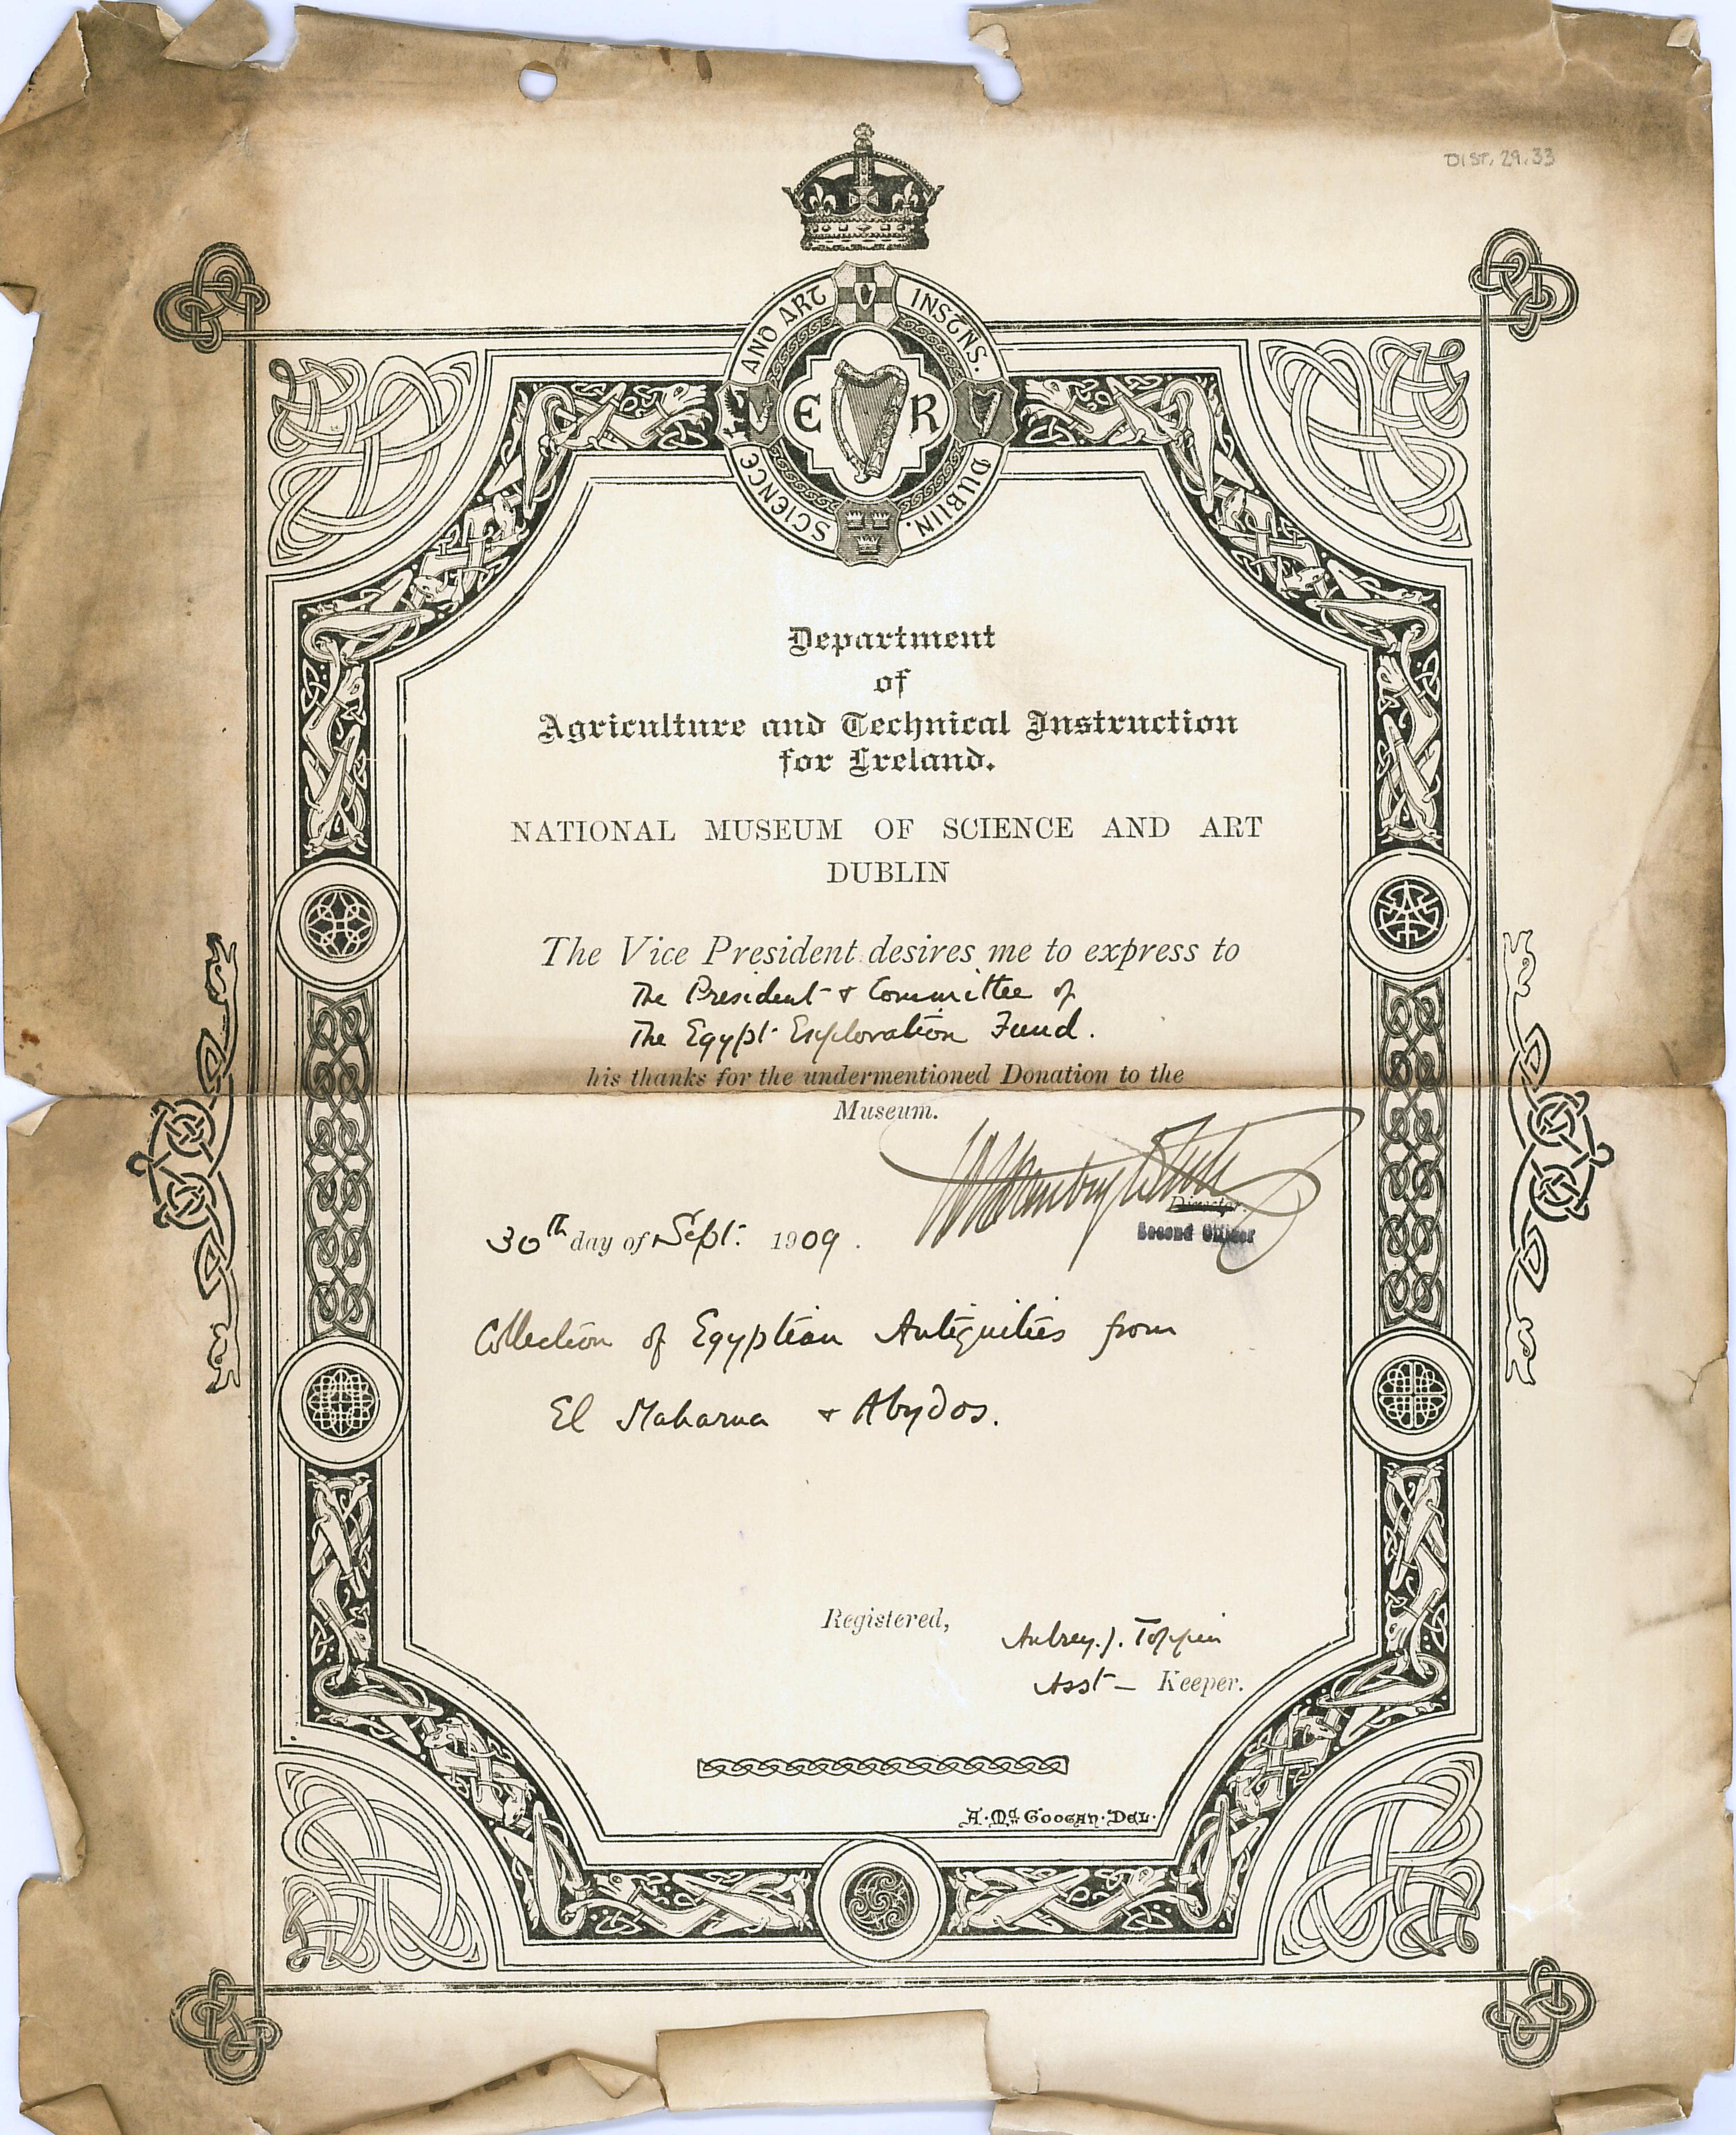 DIST. 29.33
SCIENCE AND ART INSTNS. DUBLIN.
E R
Department
of
Agriculture and Technical Instruction
for Ireland.
NATIONAL MUSEUM OF SCIENCE AND ART
DUBLIN
The Vice President desires me to express to
The President & Committee of
The Egypt Exploration Fund.
his thanks for the undermentioned Donation to the
Museum.
Director.
Second Officer
30th day of Sept. 1909.
Collection of Egyptian Antiquities from
El Maharna & Abydos.
Registered,
Aubrey. J. Toppin
Asst— Keeper.
A. McGoogan. Del.